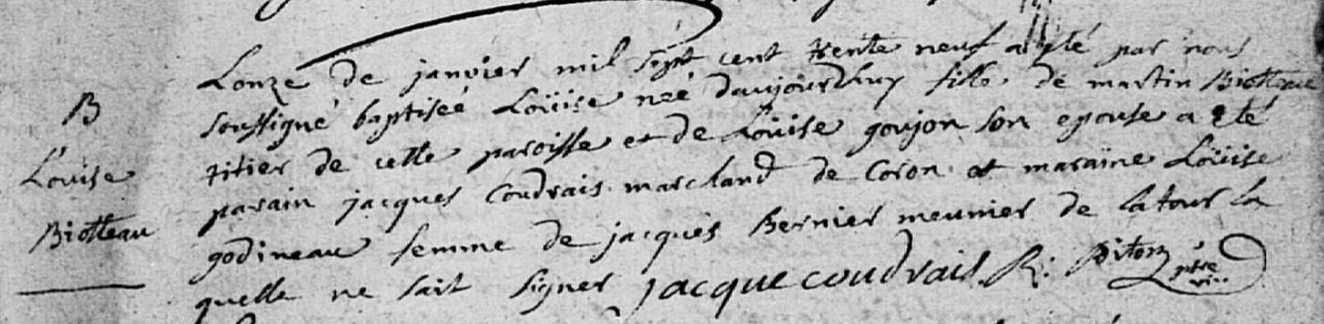 B
Louise
Biotteau
Lonze de janvier mil sept cent trente neuf a eté par nous
soussigné baptiseé Loüise neé daujourdhuy fille de martin Biotteau
titier de cette paroisse et de Loüise goujon son epouse a eté
parain jacques Coudrais marchand de Coron et maraine Loüise
godineau femme de jacques Bernier meunier de la tour la
quelle ne sait signer jacque coudrais R: Piton ptre
vic..